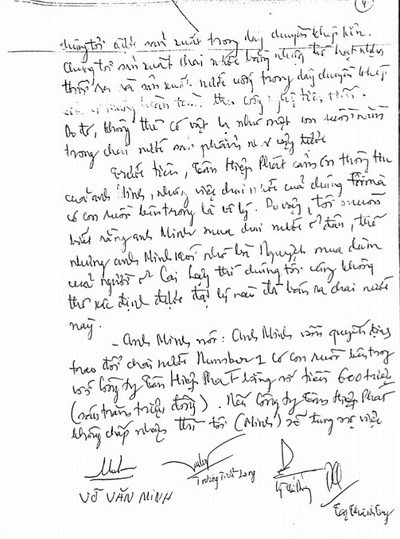 4
chúng tôi được sản xuất trong dây chuyền khép kín.
Chúng tôi sản xuất chai nước bằng nhựa từ hạt nhựa
thổi ra và sản xuất nước uống trong dây chuyền khép
Do đó, không thể có vật lạ như một con ruồi nằm
trong chai nước sản phẩm như vậy được
Trước tiên, Tân Hiệp Phát cảm ơn thông tin
của anh Minh, nhưng việc chai nước của chúng tôi mà
có con ruồi bên trong là vô lý. Do vậy, tôi muốn
biết rằng anh Minh mua chai nước ở đâu, thế
nhưng anh Minh nói như bà Nguyệt mua dùm
của người ở Cai Lậy thì chúng tôi cũng không
thể xác định được đại lý nào đã bán ra chai nước
này.
- Anh Minh nói: Anh Minh vẫn quyết định
trao đổi chai nước Number 1 có con ruồi bên trong
với Công ty Tân Hiệp Phát bằng số tiền 600 triệu
(sáu trăm triệu đồng). Nếu Công ty Tân Hiệp Phát
không chấp nhận thì tôi (Minh) sẽ tung sự việc
VÕ VĂN MINH